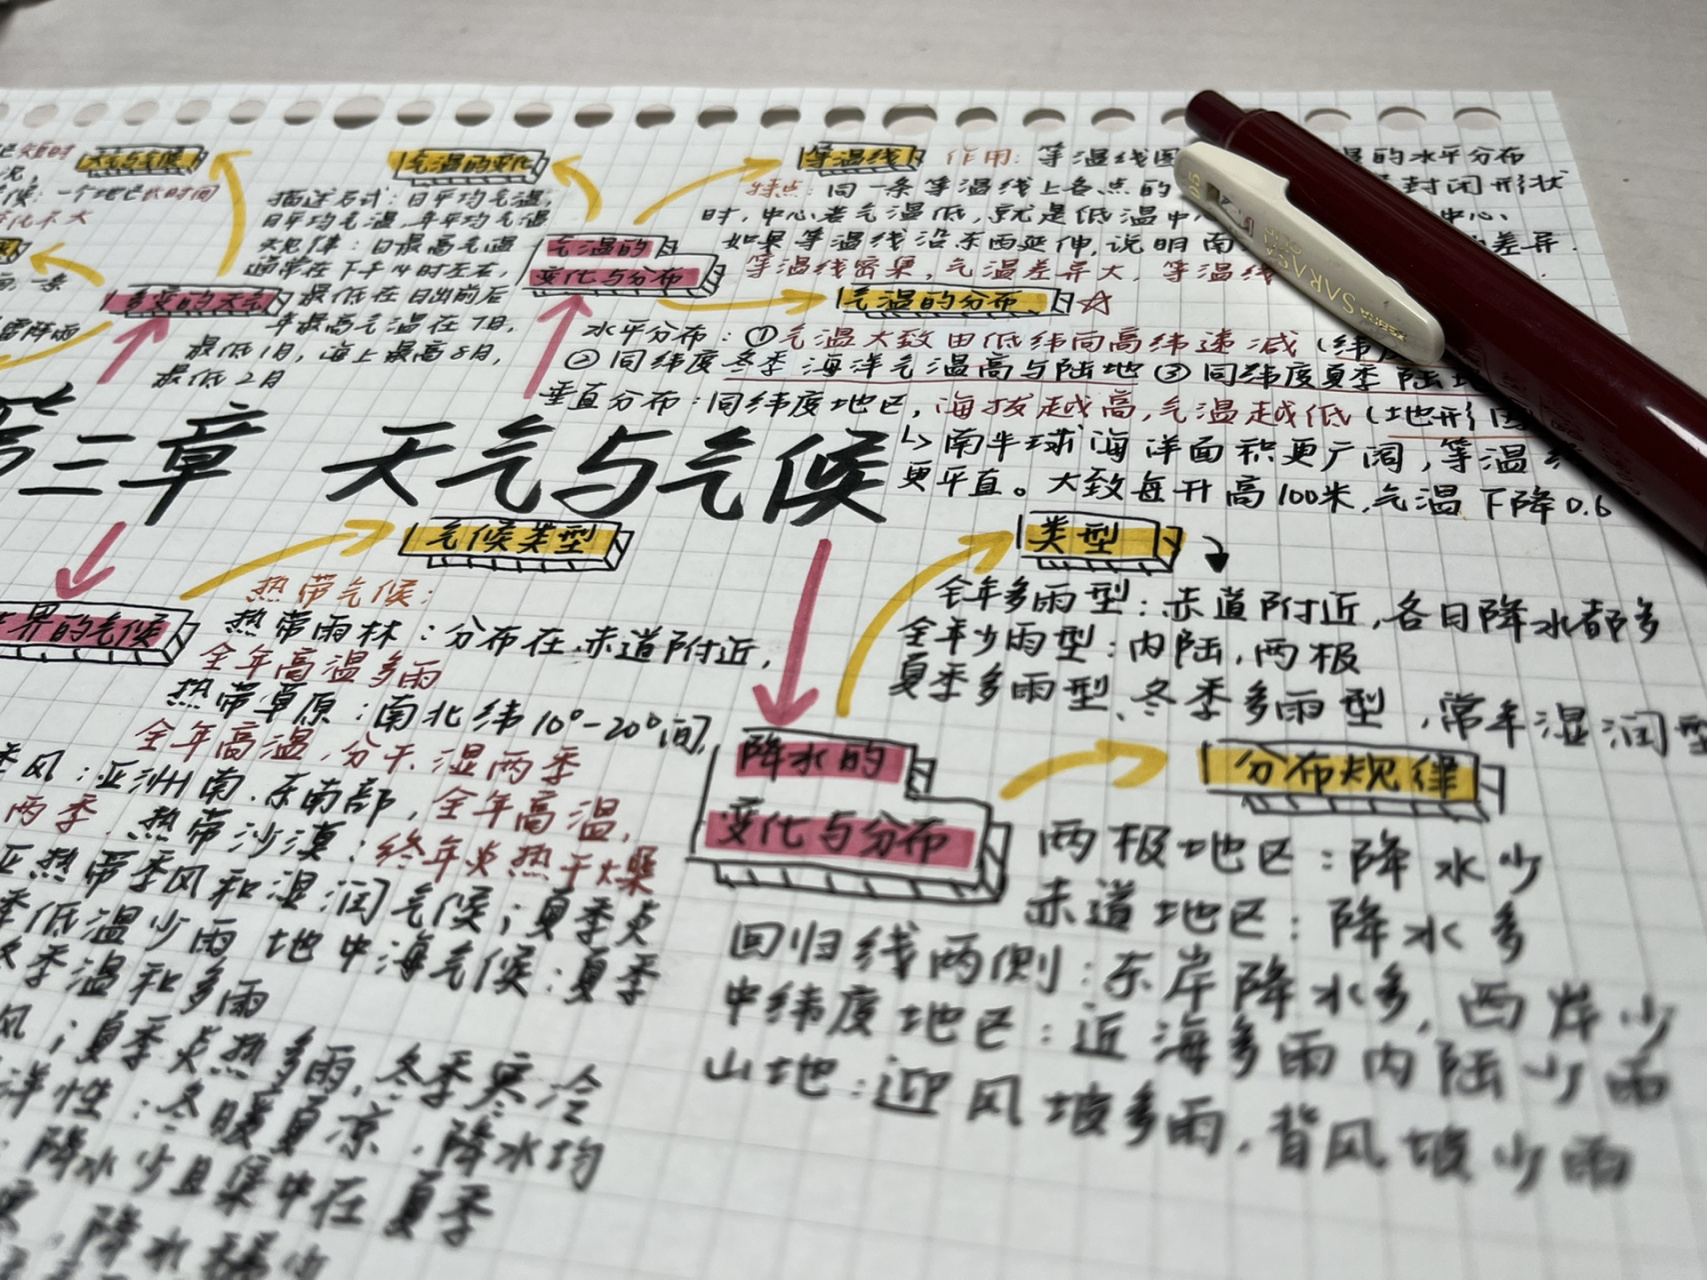 天气与气候
气温的变化
等温线
作用：等温线图
的水平分布
特点：同一条等温线上各点的
封闭形状
时，中心若气温低，就是低温中
中心、
如果等温线沿东西延伸，说明南
差异．
等温线密集，气温差异大，等温线
描述方式：日平均气温，
月平均气温，年平均气温
大规律：日最高气温
通常在下午14时左右，
最低在日出前后
年最高气温在7月，
最低1月，海上最高8月，
最低2月
气温的
变化与分布
多变的天气
气温的分布
水平分布：①气温大致由低纬向高纬递减（纬度
②同纬度冬季海洋气温高与陆地③同纬度夏季陆地
垂直分布：同纬度地区，海拔越高，气温越低（地形因
↳南半球海洋面积更广阔，等温
更平直。大致每升高100米，气温下降0.6
第三章 天气与气候
气候类型
界的气候
热带气候：
热带雨林：分布在赤道附近，
全年高温多雨
热带草原：南北纬10°-20°间，
全年高温，分干.湿两季
季风：亚洲南.东南部，全年高温，
两季．热带沙漠：终年炎热干燥
亚热带季风和湿润气候；夏季炎
季低温少雨 地中海气候：夏季
冬季温和多雨
风；夏季炎热多雨，冬季寒冷
洋性：冬暖夏凉，降水均
：降水少且集中在夏季
降水稀少
类型
全年多雨型：赤道附近，各日降水都多
全年少雨型：内陆，两极
夏季多雨型、冬季多雨型，常年湿润型
降水的
变化与分布
分布规律
两极地区：降水少
赤道地区：降水多
回归线两侧：东岸降水多，西岸少
中纬度地区：近海多雨内陆少雨
山地：迎风坡多雨，背风坡少雨
SARASA